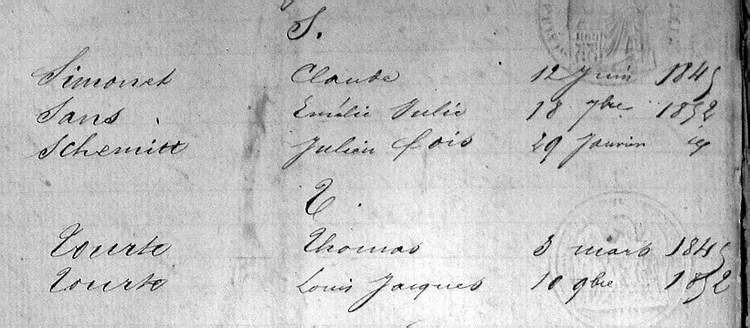 S.
Simonet Claude 12 Juin 1845
Sans Emélie Julie 18 9bre 1852
Schemitt Julien fois 29 Janvier
T.
Tourte Thomas 3 mars 1845
Tourte Louis Jacques 10 9bre 1852